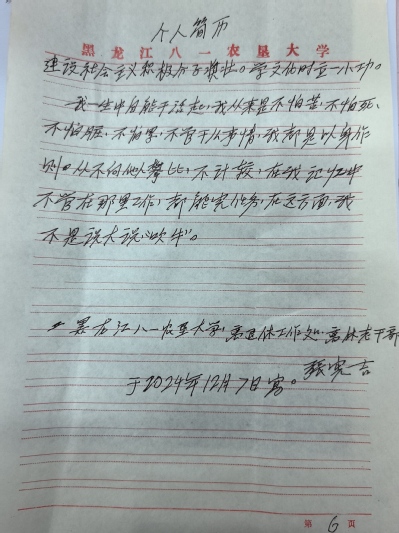 个人简历
黑龙江八一农垦大学
建设社会主义积极分子奖状。学文化时立一小功。
我一生中自能干活起，我从来是不怕苦、不怕死、
不怕脏、不怕累、不管干从事情，我都是以身作
则。从不向他人攀比，不计较，在我记忆中
不管在那里工作，都能完任务，在这方面，我
不是说大话"吹牛"。
黑龙江八一农垦大学，离退休工作处，离休老干部
张宪吉
于2024年12月7日写。
第 6 页